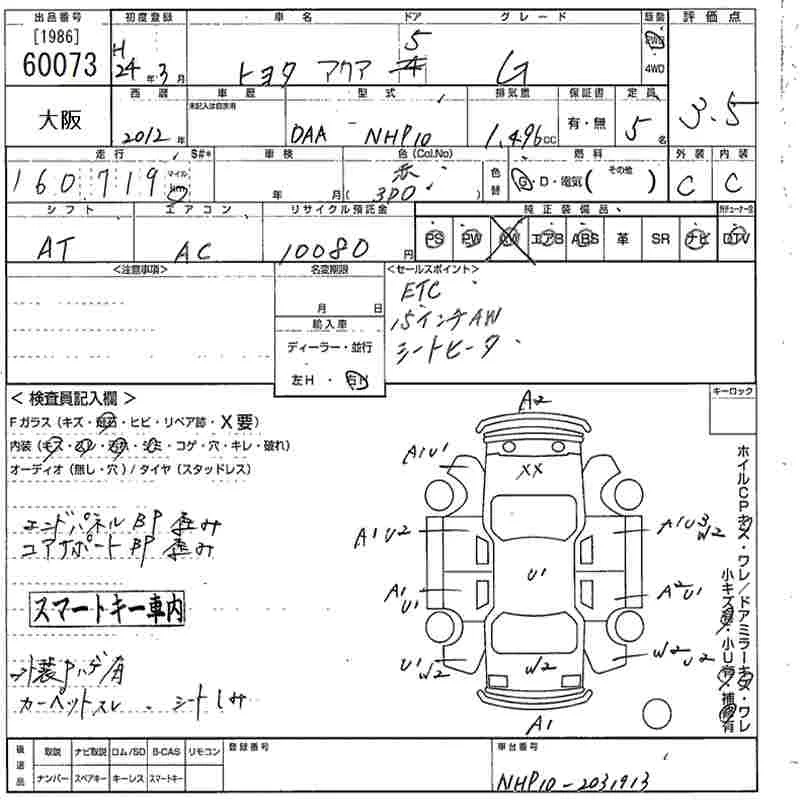 出品番号 初度登録 車名 ドア グレード 駆動 評価点
[1986]
60073
H 24年3月 トヨタ アクア 5 G 2WD 4WD 3.5
西暦 車歴 型式 排気量 保証書 定員
未記入は自家用
大阪 2012年 DAA - NHP10 1.496cc 有・無 5名
走行 S#* 車検 色(Col.No) 燃料 外装 内装
160719 マイル Km 年 月 赤 ( 3P0 ) 色替 G・D・電気( その他 ) C C
シフト エアコン リサイクル預託金 純正装備品
AT AC 10080円 PS PW AW エアB ABS 革 SR ナビ DTV
<注意事項> 名変期限 <セールスポイント>
月 日
ETC
15インチAW
シートヒータ
輸入車
ディーラー・並行
左H・右H
<検査員記入欄> キーロック
Fガラス(キズ・飛石・ヒビ・リペア跡・X要)
内装(キズ・ スレ・ ・シミ・コゲ・穴・キレ・破れ)
オーディオ(無し・穴)/タイヤ(スタッドレス)
エンドパネルBP歪み
コアサポートBP歪み
スマートキー車内
外装Pハゲ有
カーペットスレ、シートしみ
A2
A1U1
XX
A1U2 A1U3 W2
U1
A1 U1 A2U1
U1 W2 W2 W2 U2
A1
ホイルCPキズ・ワレ/ドアミラーキズ・ワレ
小キズ有・小U有・補修有
後送品 取説 ナビ取説 ロム/SD B-CAS リモコン 登録番号 車台番号
ナンバー スペアキー キーレス スマートキー
NHP10-2031913